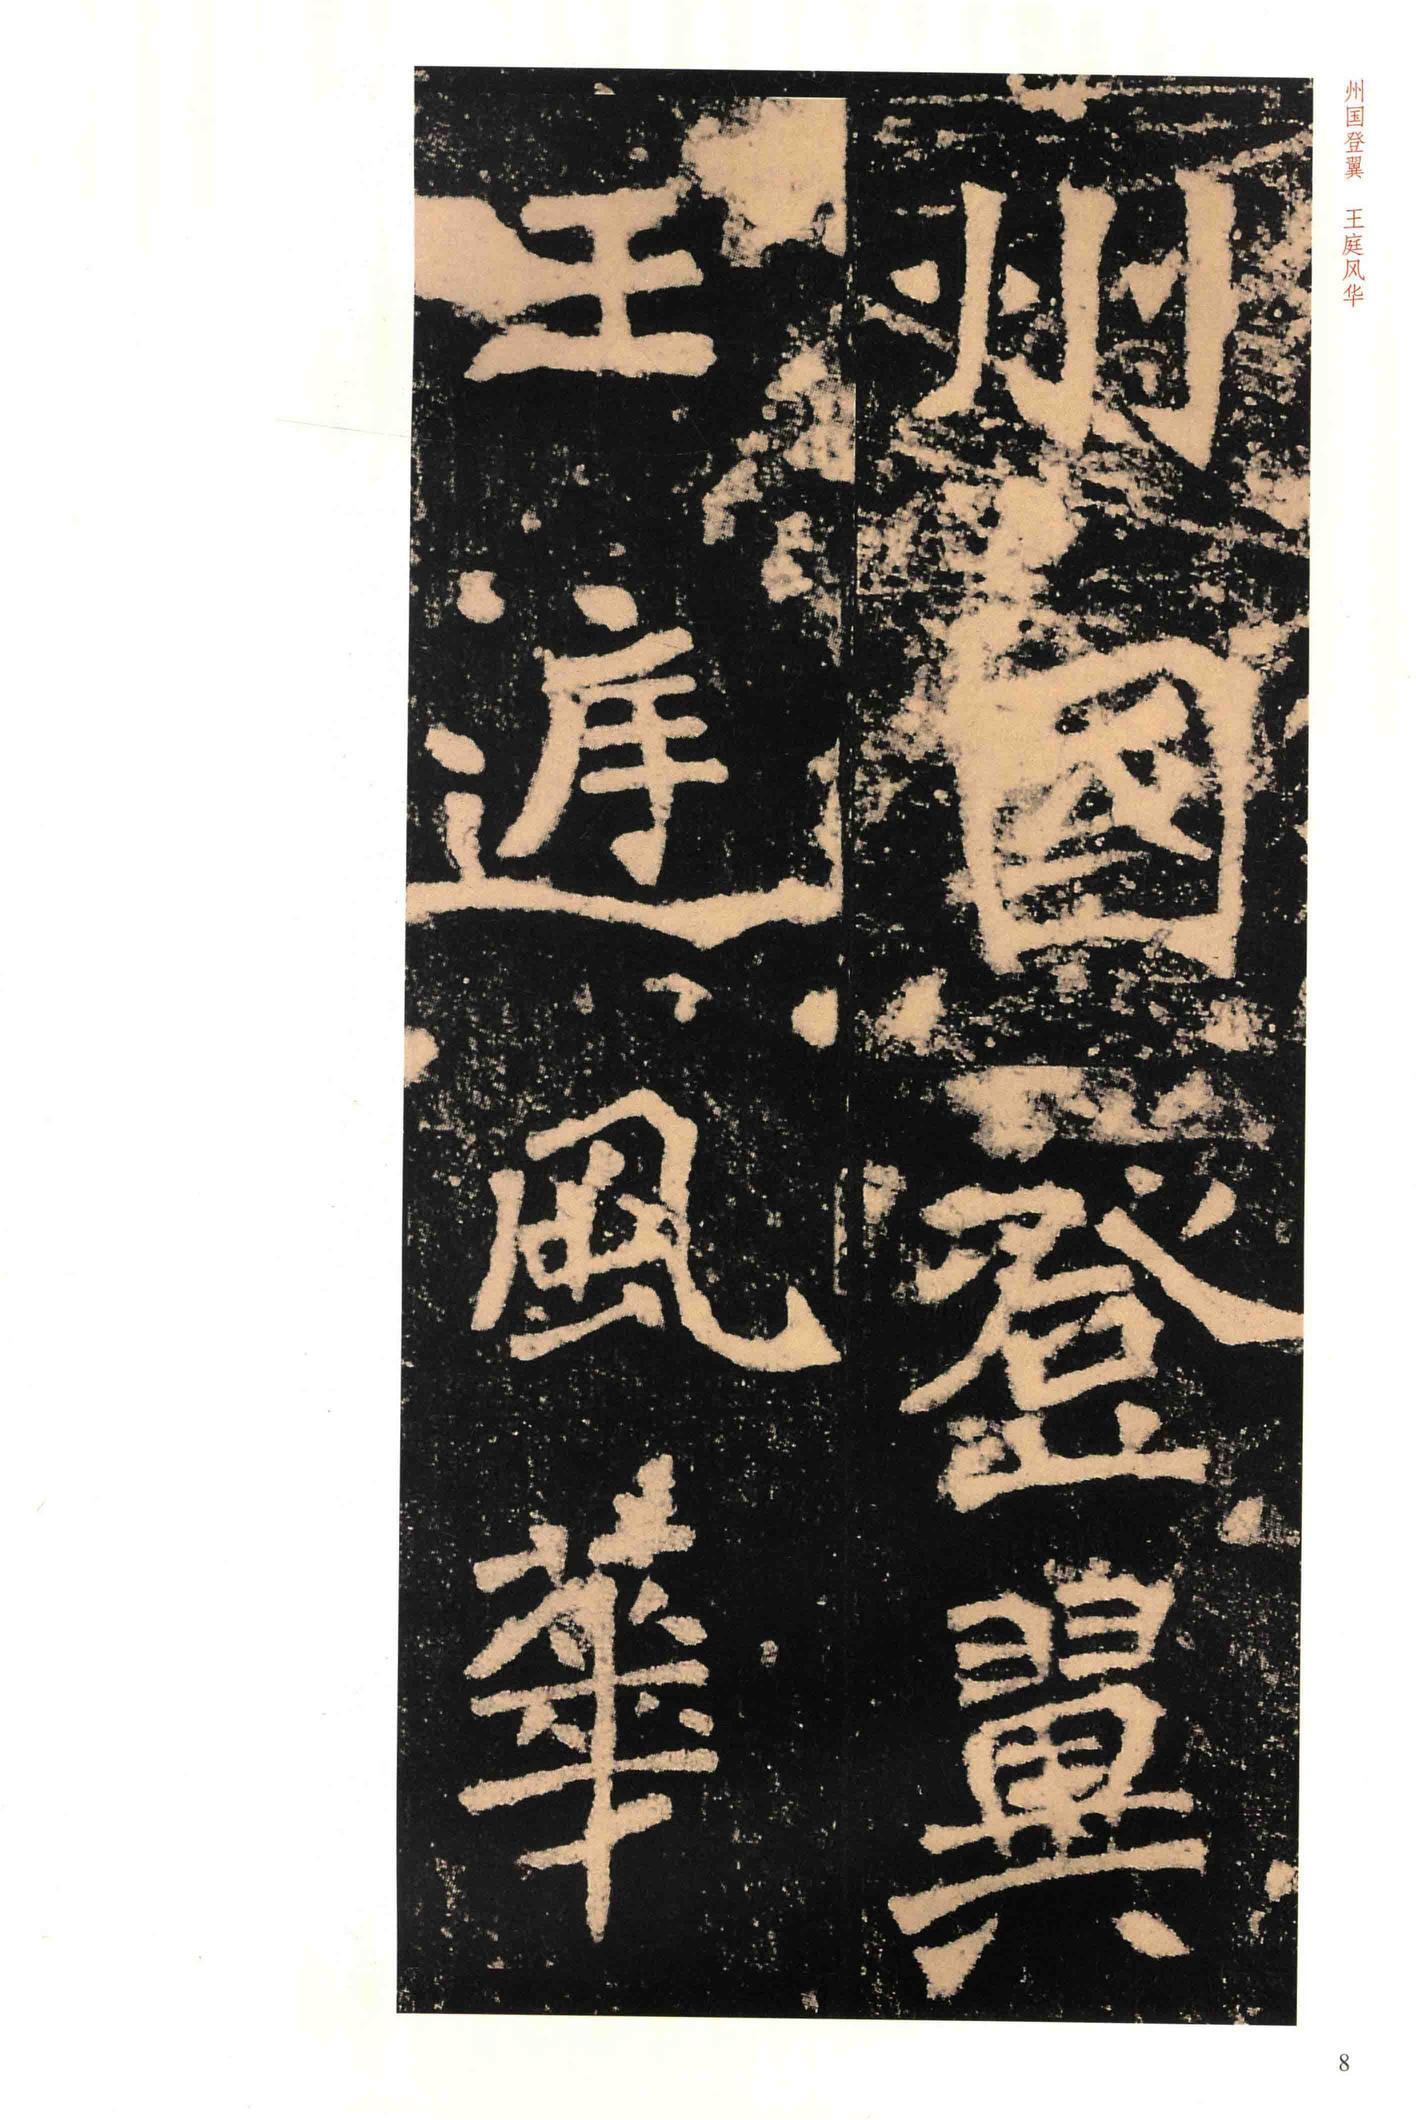 州国登翼 王庭风华
州國登翼
王庭風華
8